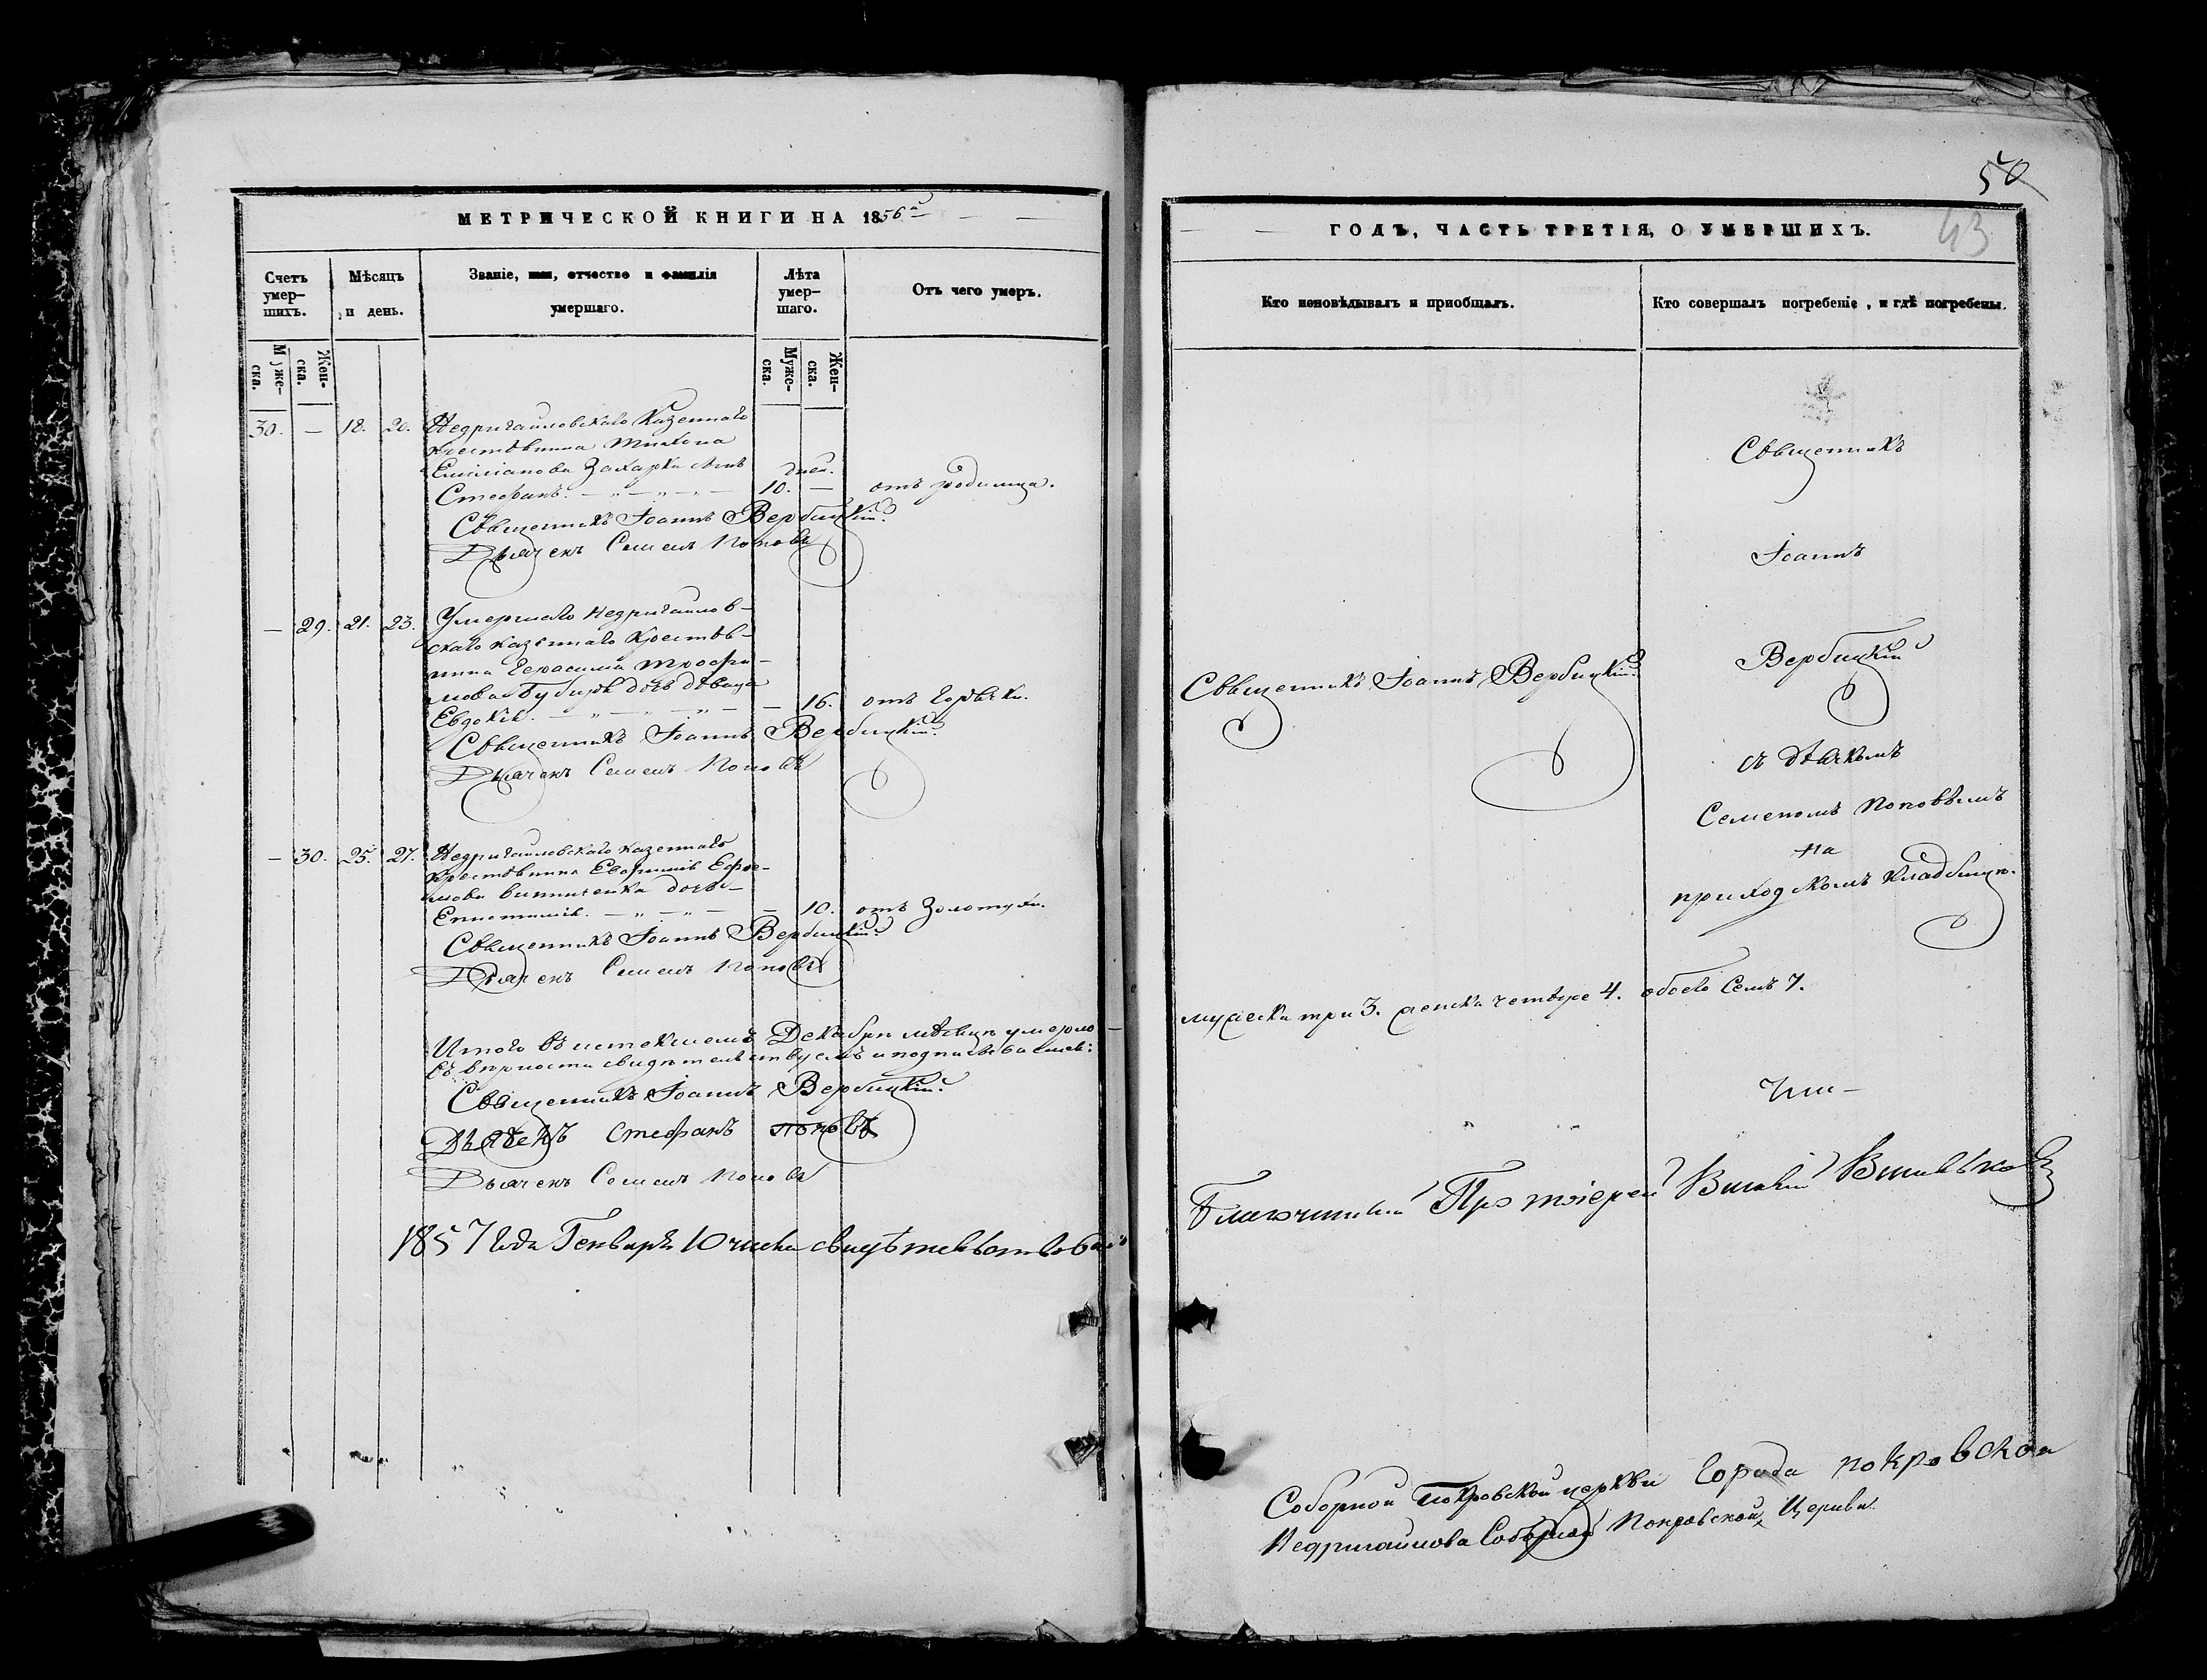 МЕТРИЧЕСКОЙ КНИГИ НА 1856й
Счетъ умер-шихъ.
Мѣсяцъ и день.
Званіе, имя, отчество и фамилія умершаго.
Лѣта умер-шаго.
Отъ чего умеръ.
Муже-ска. Жен-ска.
Муже-ска. Жен-ска.
30. — 18. 20. Недригайловскаго Казеннаго
крестьянина Тихона
Емиліанова Захарки сынъ дней.
Стефанъ. — „ — „ — „ — 10. — отъ родимца.
Священникъ Іоаннъ Вербицкій.
Дьячекъ Семенъ Поповъ
— 29. 21. 23. Умершаго Недригайлов-
скаго казеннаго Крестья-
нина Герасима Трофи-
мова дочь дѣвица
Евдокія. — „ — „ — „ — — 16. отъ Горячки.
Священникъ Іоаннъ Вербицкій.
Дьячекъ Семенъ Поповъ
— 30. 25. 27. Недригайловскаго казеннаго
Крестьянина Евфимія Ефре-
мова дочь
Епистимія. — „ — „ — — 10. отъ Золотухи.
Священникъ Іоаннъ Вербицкій.
Дьячекъ Семенъ Поповъ
Итого въ истекшемъ Декабрѣ мѣсяцѣ умерло —
Въ вѣрности свидѣтельствуемъ и подписываемся:
Священникъ Іоаннъ Вербицкій.
Дьячекъ Стефанъ Поповъ
Дьячекъ Семенъ Поповъ
1857 года Генваря 10 числа свидѣтельствовалъ
50
43
ГОДЪ, ЧАСТЬ ТРЕТІЯ, О УМЕРШИХЪ.
Кто исповѣдывалъ и приобщалъ.
Кто совершалъ погребеніе, и гдѣ погребены.
Священникъ
Іоаннъ
Вербицкій
Священникъ Іоаннъ Вербицкій.
съ дьячкомъ
Семеномъ Поповымъ
на
приходскомъ кладбищѣ.
мужеска три 3. женска четыре 4. обоего Семь 7.
Благочинный Протоіерей
Соборной Покровской церкви Города Покровской
Недригайлова Соборной Покровской Церкви.